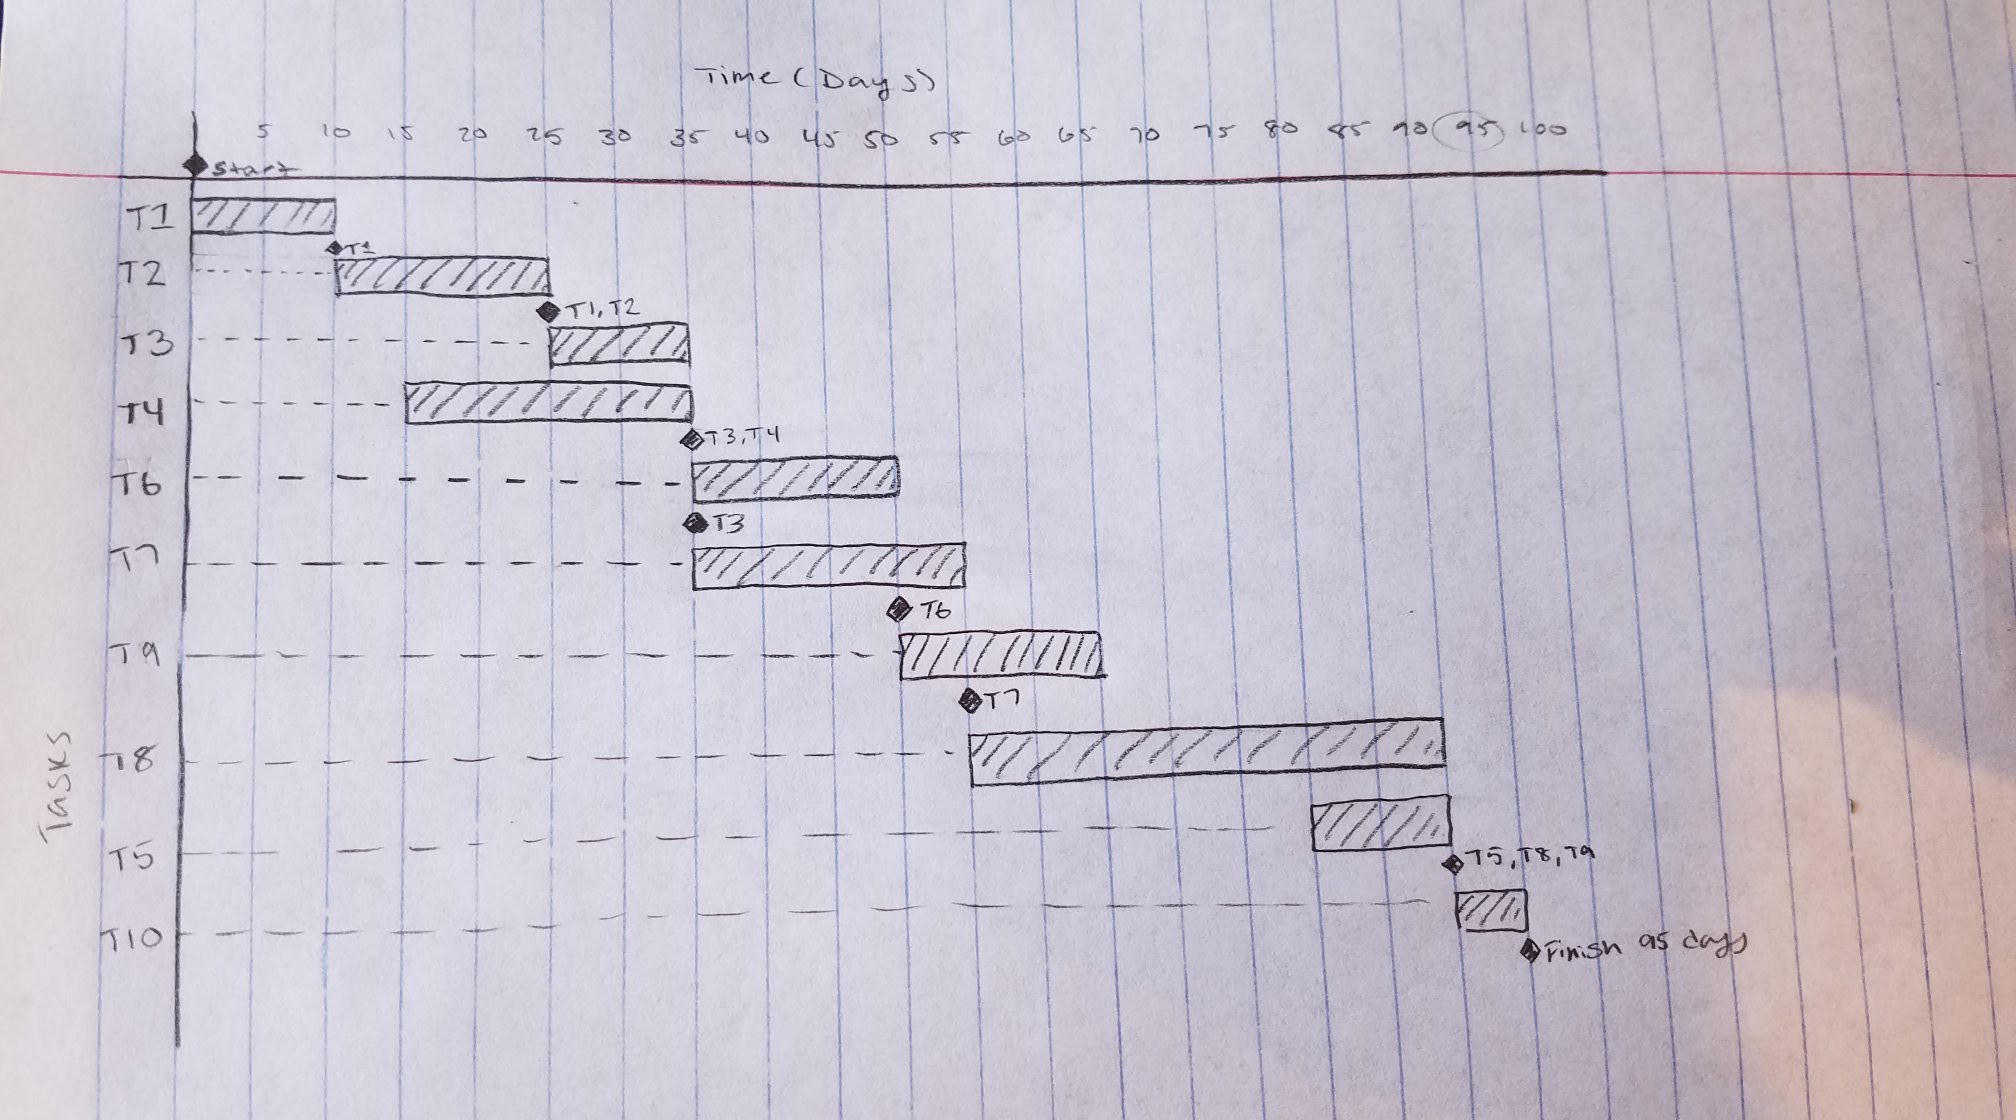 Time (Days)
5 10 15 20 25 30 35 40 45 50 55 60 65 70 75 80 85 90 95 100
Start
T1
T1
T2
T1, T2
T3
T4
T3, T4
T6
T3
T7
T6
T9
T7
T8
Tasks
T5
T5, T8, T9
T10
Finish 95 days